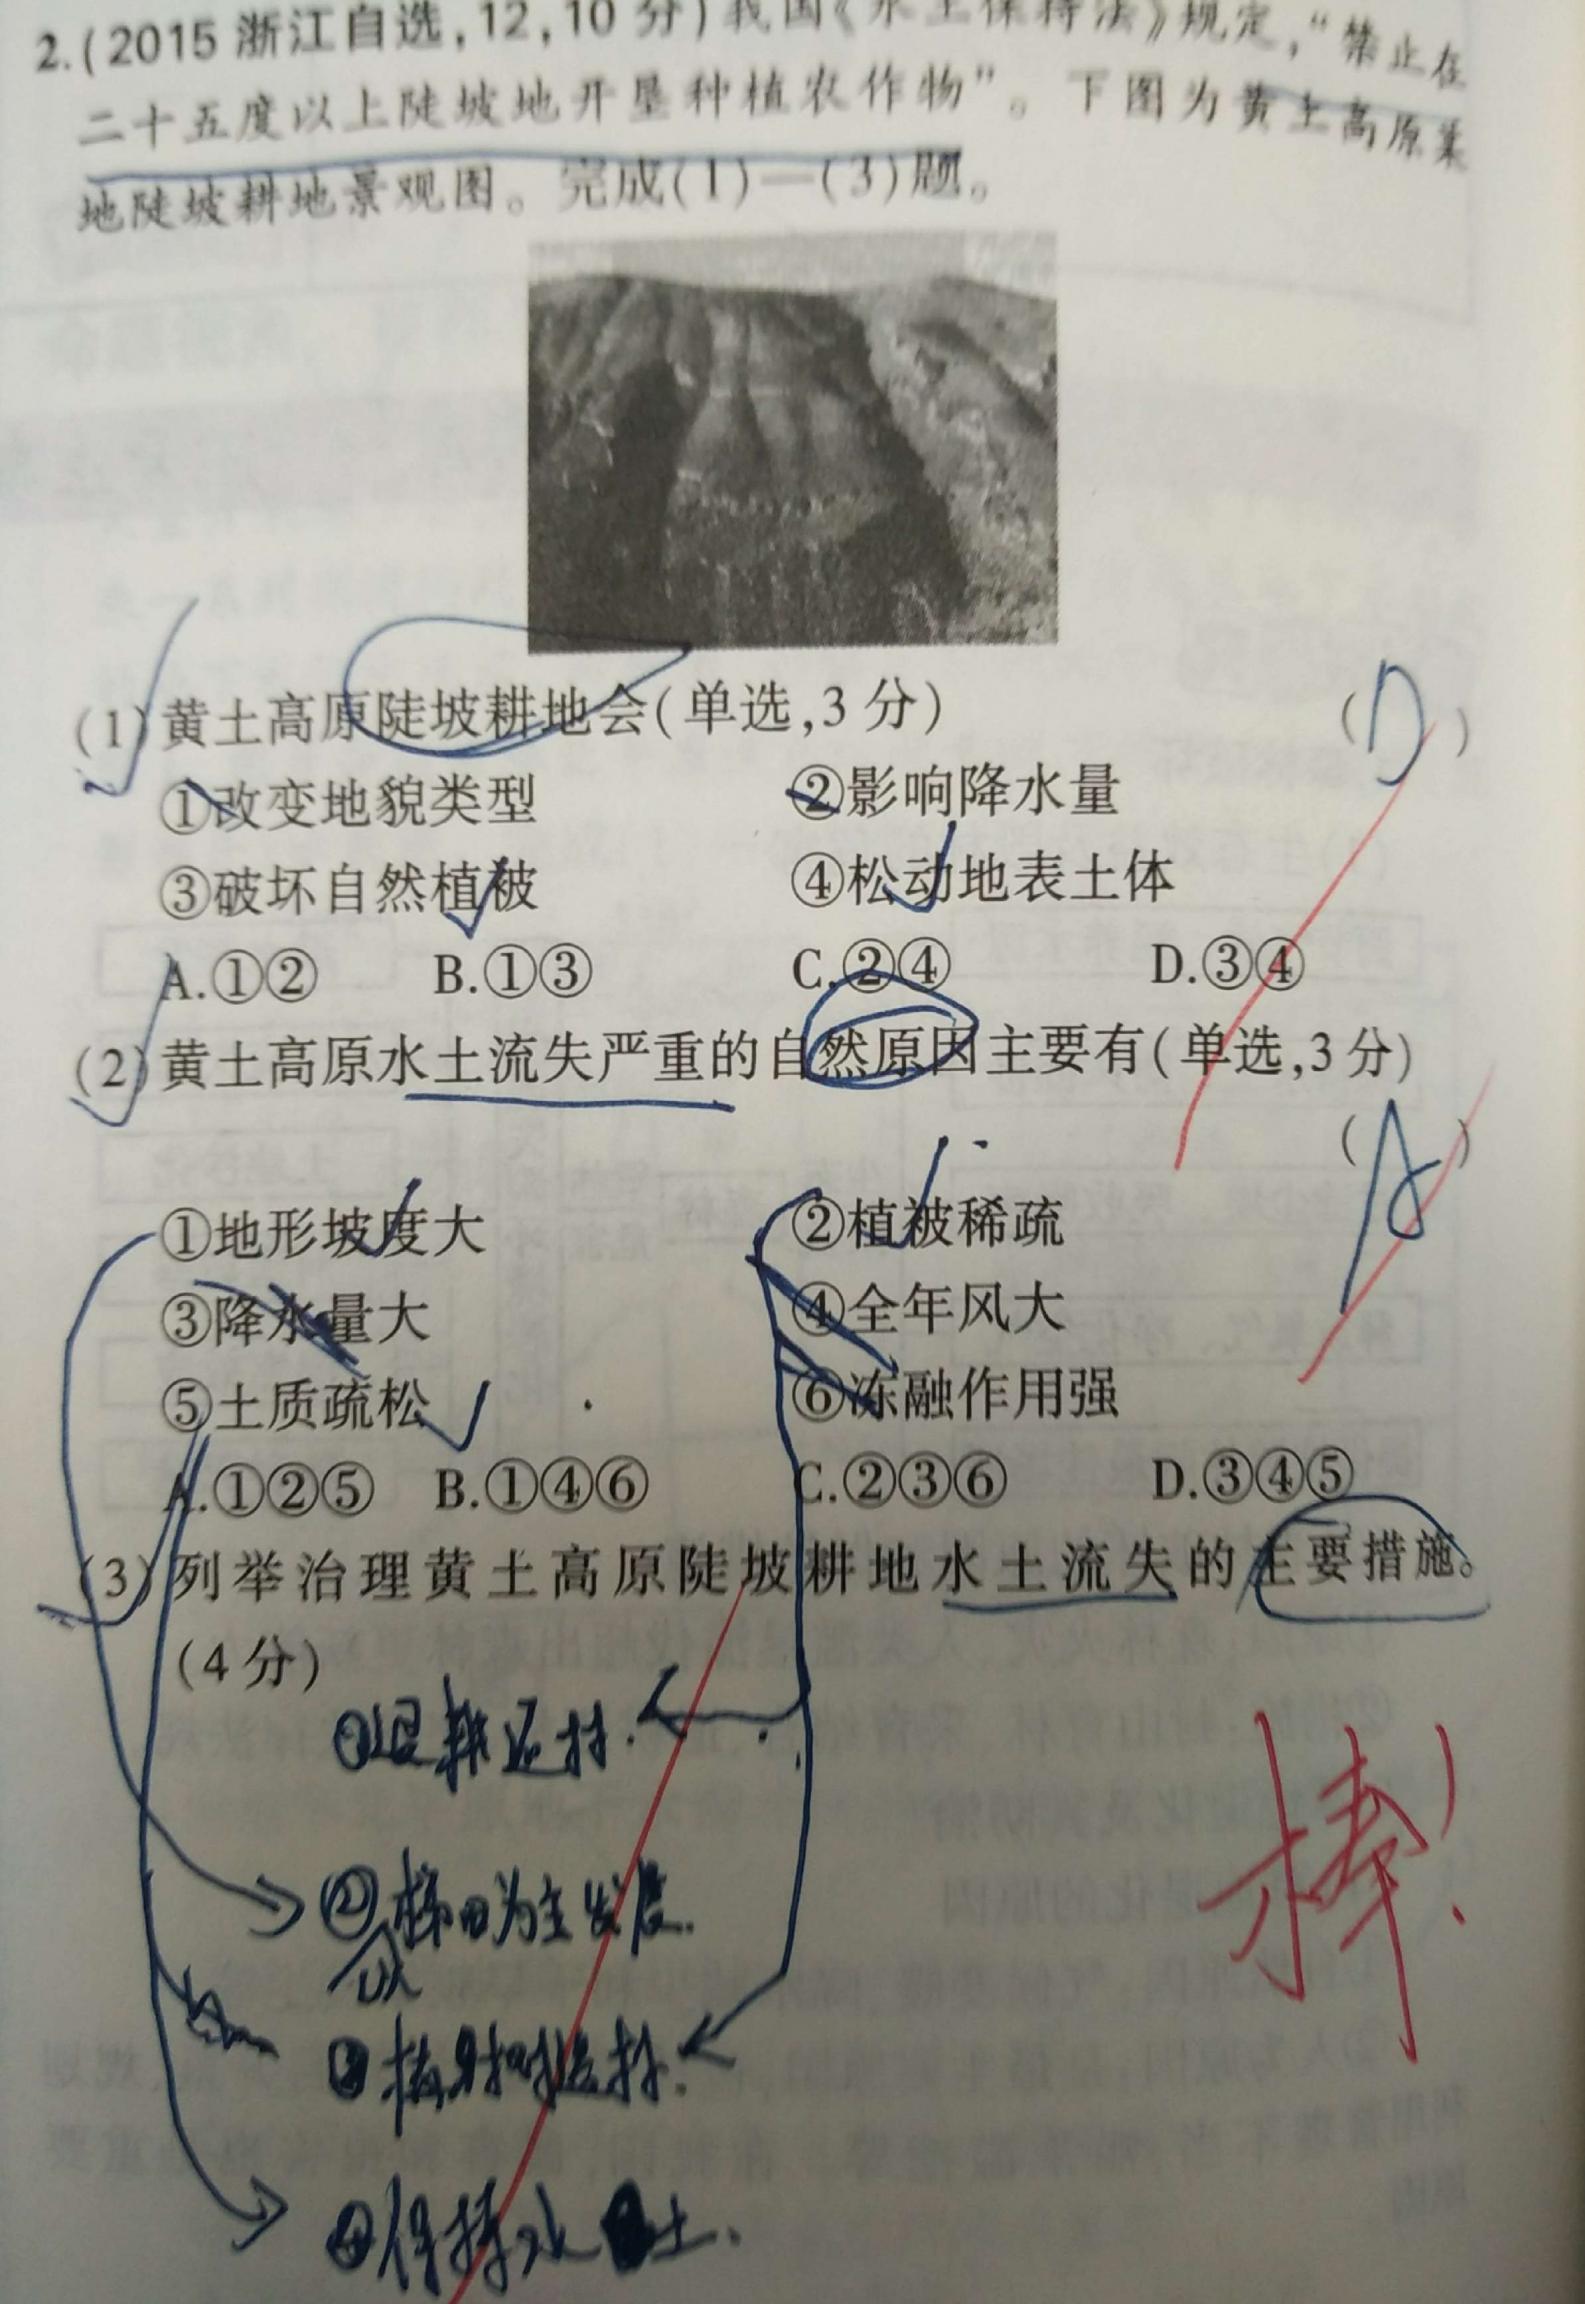 2.(2015浙江自选,12,10分)我国《水土保持法》规定,“禁止在
二十五度以上陡坡地开垦种植农作物”。下图为黄土高原某
地陡坡耕地景观图。完成(1)—(3)题。
(1)黄土高原陡坡耕地会(单选,3分) (D)
①改变地貌类型 ②影响降水量
③破坏自然植被 ④松动地表土体
A.①② B.①③ C.②④ D.③④
(2)黄土高原水土流失严重的自然原因主要有(单选,3分)
(A)
①地形坡度大 ②植被稀疏
③降水量大 ④全年风大
⑤土质疏松 ⑥冻融作用强
A.①②⑤ B.①④⑥ C.②③⑥ D.③④⑤
(3)列举治理黄土高原陡坡耕地水土流失的主要措施。
(4分)
①退耕还林.
棒!
②梯田为主
④保持水土.